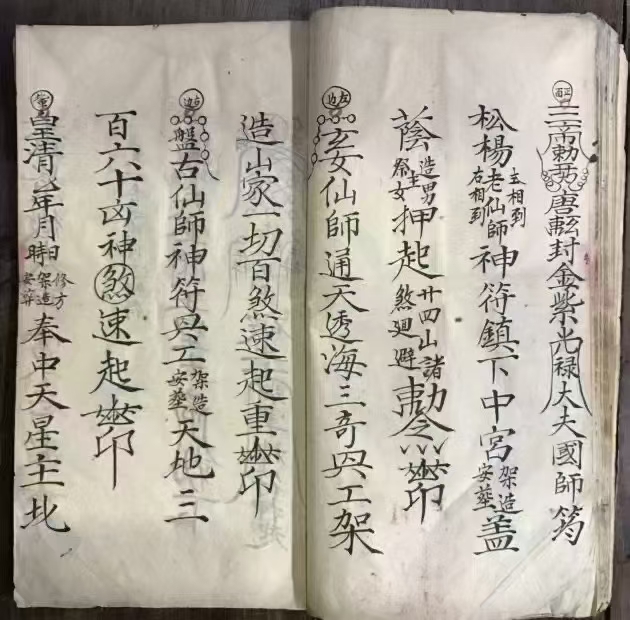 正面
三帝勅封唐軚封金紫光禄大夫國師筠
松楊老仙師左相到右相到神符鎮下中宮架造安葬蓋
蔭造男主祭女押起廿四山諸煞廻避勅令印
左边
姜仙師通天透海三奇興工架
造山家一切百煞速起重印
右边
盤古仙師神符興工架造安葬天地三
百六十凶神煞速起印
皇清年月日時修方架造安葬奉中天星主北